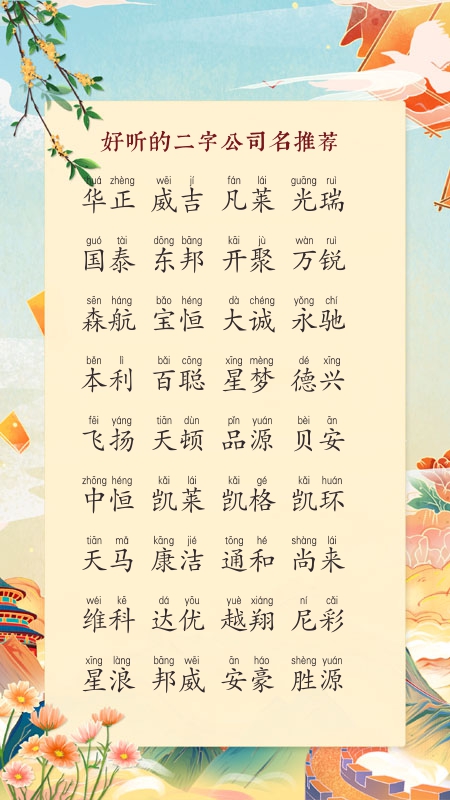 好听的二字公司名推荐
huá zhèng wēi jí fán lái guāng ruì
华正 威吉 凡莱 光瑞
guó tài dōng bāng kāi jù wàn ruì
国泰 东邦 开聚 万锐
sēn háng bǎo héng dà chéng yǒng chí
森航 宝恒 大诚 永驰
běn lì bǎi cōng xīng mèng dé xīng
本利 百聪 星梦 德兴
fēi yáng tiān dùn pǐn yuán bèi ān
飞扬 天顿 品源 贝安
zhōng héng kǎi lái kǎi gé kǎi huán
中恒 凯莱 凯格 凯环
tiān mǎ kāng jié tōng hé shàng lái
天马 康洁 通和 尚来
wéi kē dá yōu yuè xiáng ní cǎi
维科 达优 越翔 尼彩
xīng làng bāng wēi ān háo shèng yuán
星浪 邦威 安豪 胜源